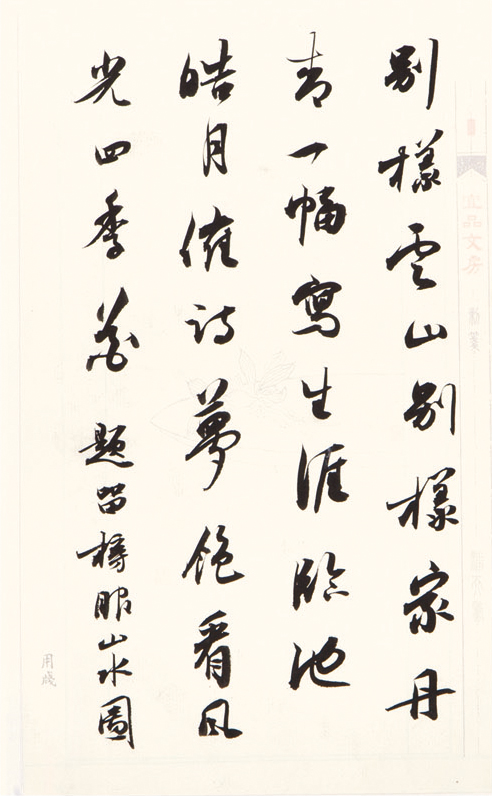 別樣雲山別樣家丹
青一幅寫生涯臨池
皓月催詩夢飽看風
光四季花 題留樽眼山水圖
宜品文房
用箋